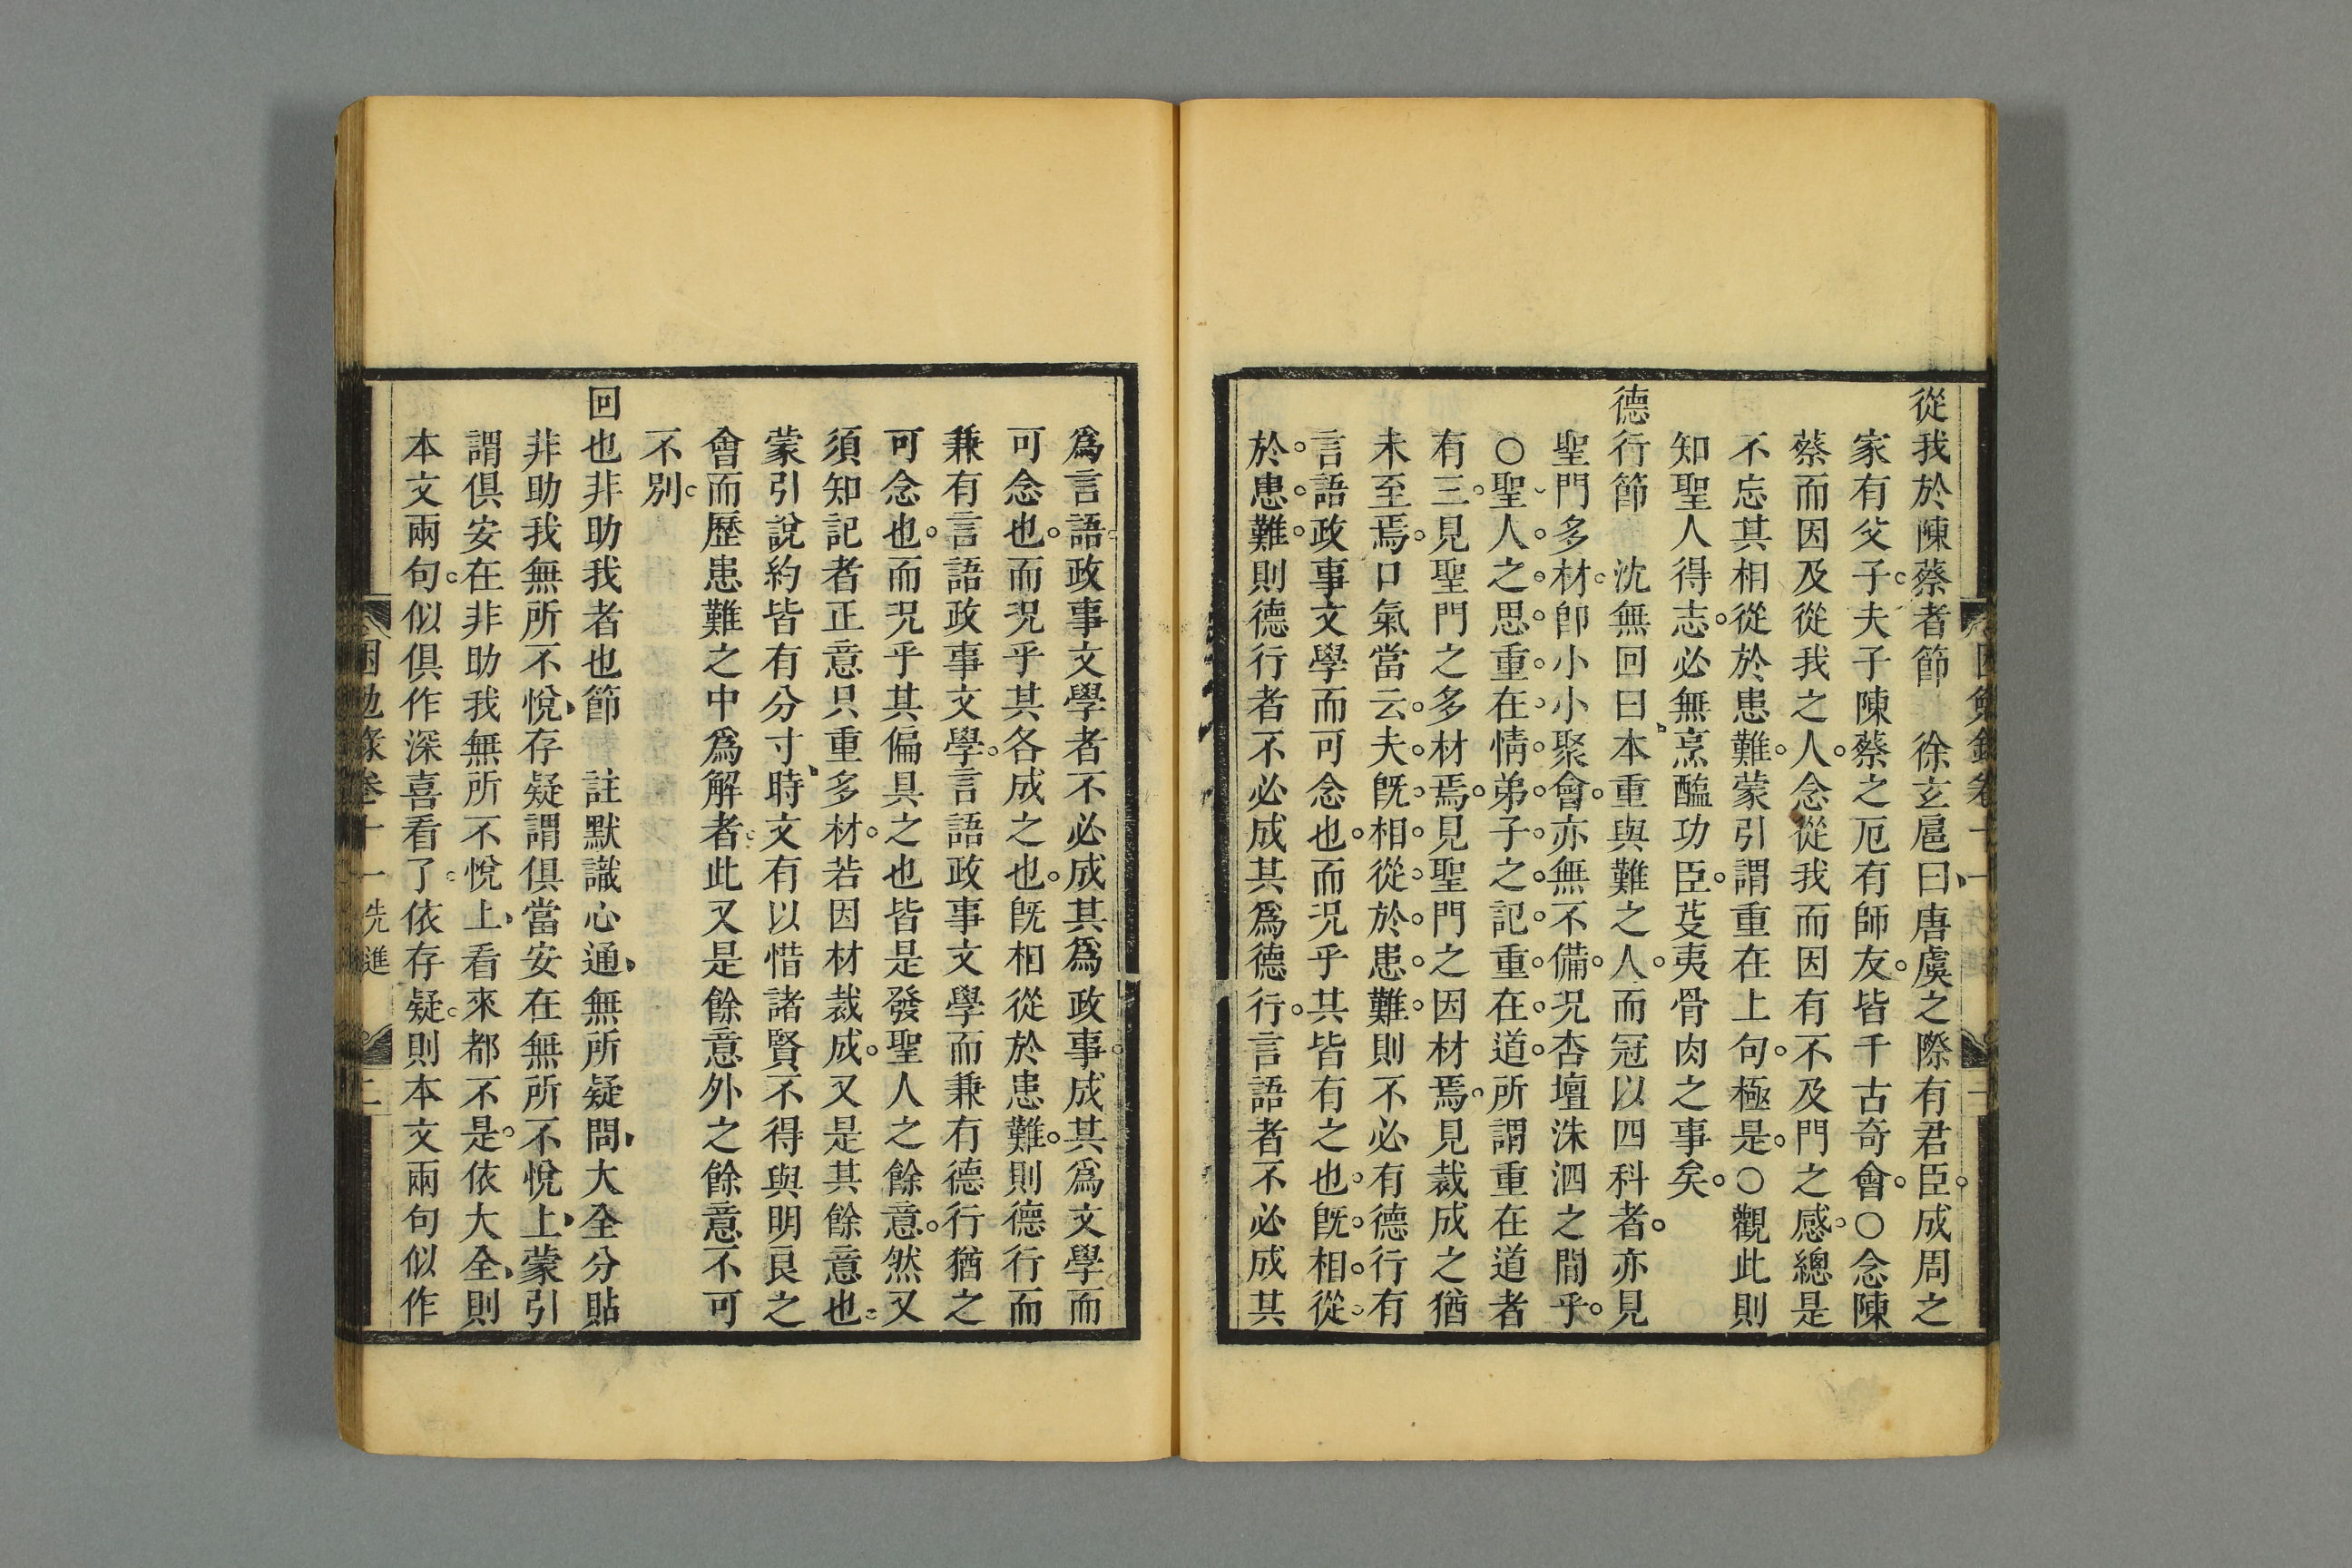 從我於陳蔡者節　徐玄扈曰唐虞之際有君臣成周之
家有父子夫子陳蔡之厄有師友皆千古奇會○念陳
蔡而因及從我之人念從我而因有不及門之感總是
不忘其相從於患難蒙引謂重在上句極是○觀此則
知聖人得志必無烹醢功臣芟夷骨肉之事矣
德行節　沈無回曰本重與難之人而冠以四科者亦見
聖門多材卽小小聚會亦無不備況杏壇洙泗之間乎
○聖人之思重在情弟子之記重在道所謂重在道者
有三見聖門之多材焉見聖門之因材焉見裁成之猶
未至焉口氣當云夫旣相從於患難則不必有德行有
言語政事文學而可念也而況乎其皆有之也旣相從
於患難則德行者不必成其爲德行言語者不必成其
爲言語政事文學者不必成其爲政事成其爲文學而
可念也而況乎其各成之也旣相從於患難則德行而
兼有言語政事文學言語政事文學而兼有德行猶之
可念也而況乎其偏具之也皆是發聖人之餘意然又
須知記者正意只重多材若因材裁成又是其餘意也
蒙引說約皆有分寸時文有以惜諸賢不得與明良之
會而歷患難之中爲解者此又是餘意外之餘意不可
不別
回也非助我者也節　註默識心通無所疑問大全分貼
非助我無所不悅存疑謂俱當安在無所不悅上蒙引
謂俱安在非助我無所不悅上看來都不是依大全則
本文兩句似俱作深喜看了依存疑則本文兩句似作
困勉錄卷十一　先進　二